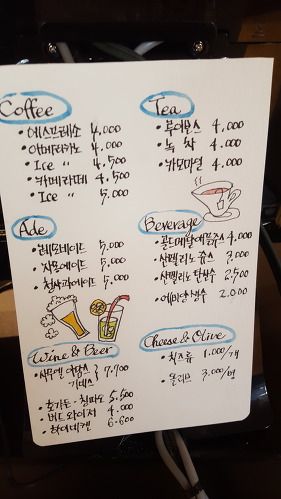 Coffee
• 에스프레소 4.000
• 아메리카노 4.000
• Ice " 4.500
• 카페라떼 4.500
• Ice " 5.000
Tea
• 루이보스 4.000
• 녹 차 4.000
• 카모마일 4.000
Ade
• 레몬에이드 5.000
• 자몽에이드 5.000
• 청사과에이드 5.000
Beverage
• 골드메달애플쥬스 4.000
• 산펠리노 쥬스 3.000
• 산펠리노 탄산수 2.500
• 에비앙 생수 2.000
Wine & Beer
• 사무엘 아담스 } 7.700
기네스
• 호가든 · 칭따오 5.500
• 버드와이저 4.000
• 하이네켄 6.600
Cheese & Olive
• 치즈류 1.000/개
• 올리브 3.000/병